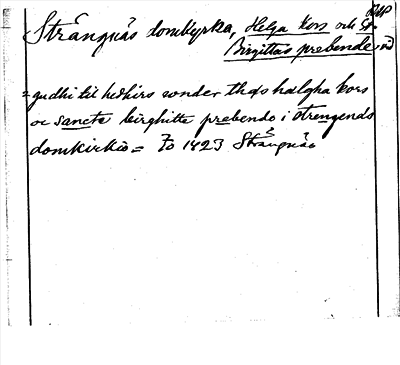 Strängnäs domkyrka, Helga kors och St.
Birgittas prebende
= gudhi til hedhirs vonder thæs halgha kors
oc sancte birghitte prebendo i strengenäs
domkirkio = 1423 Strängnäs